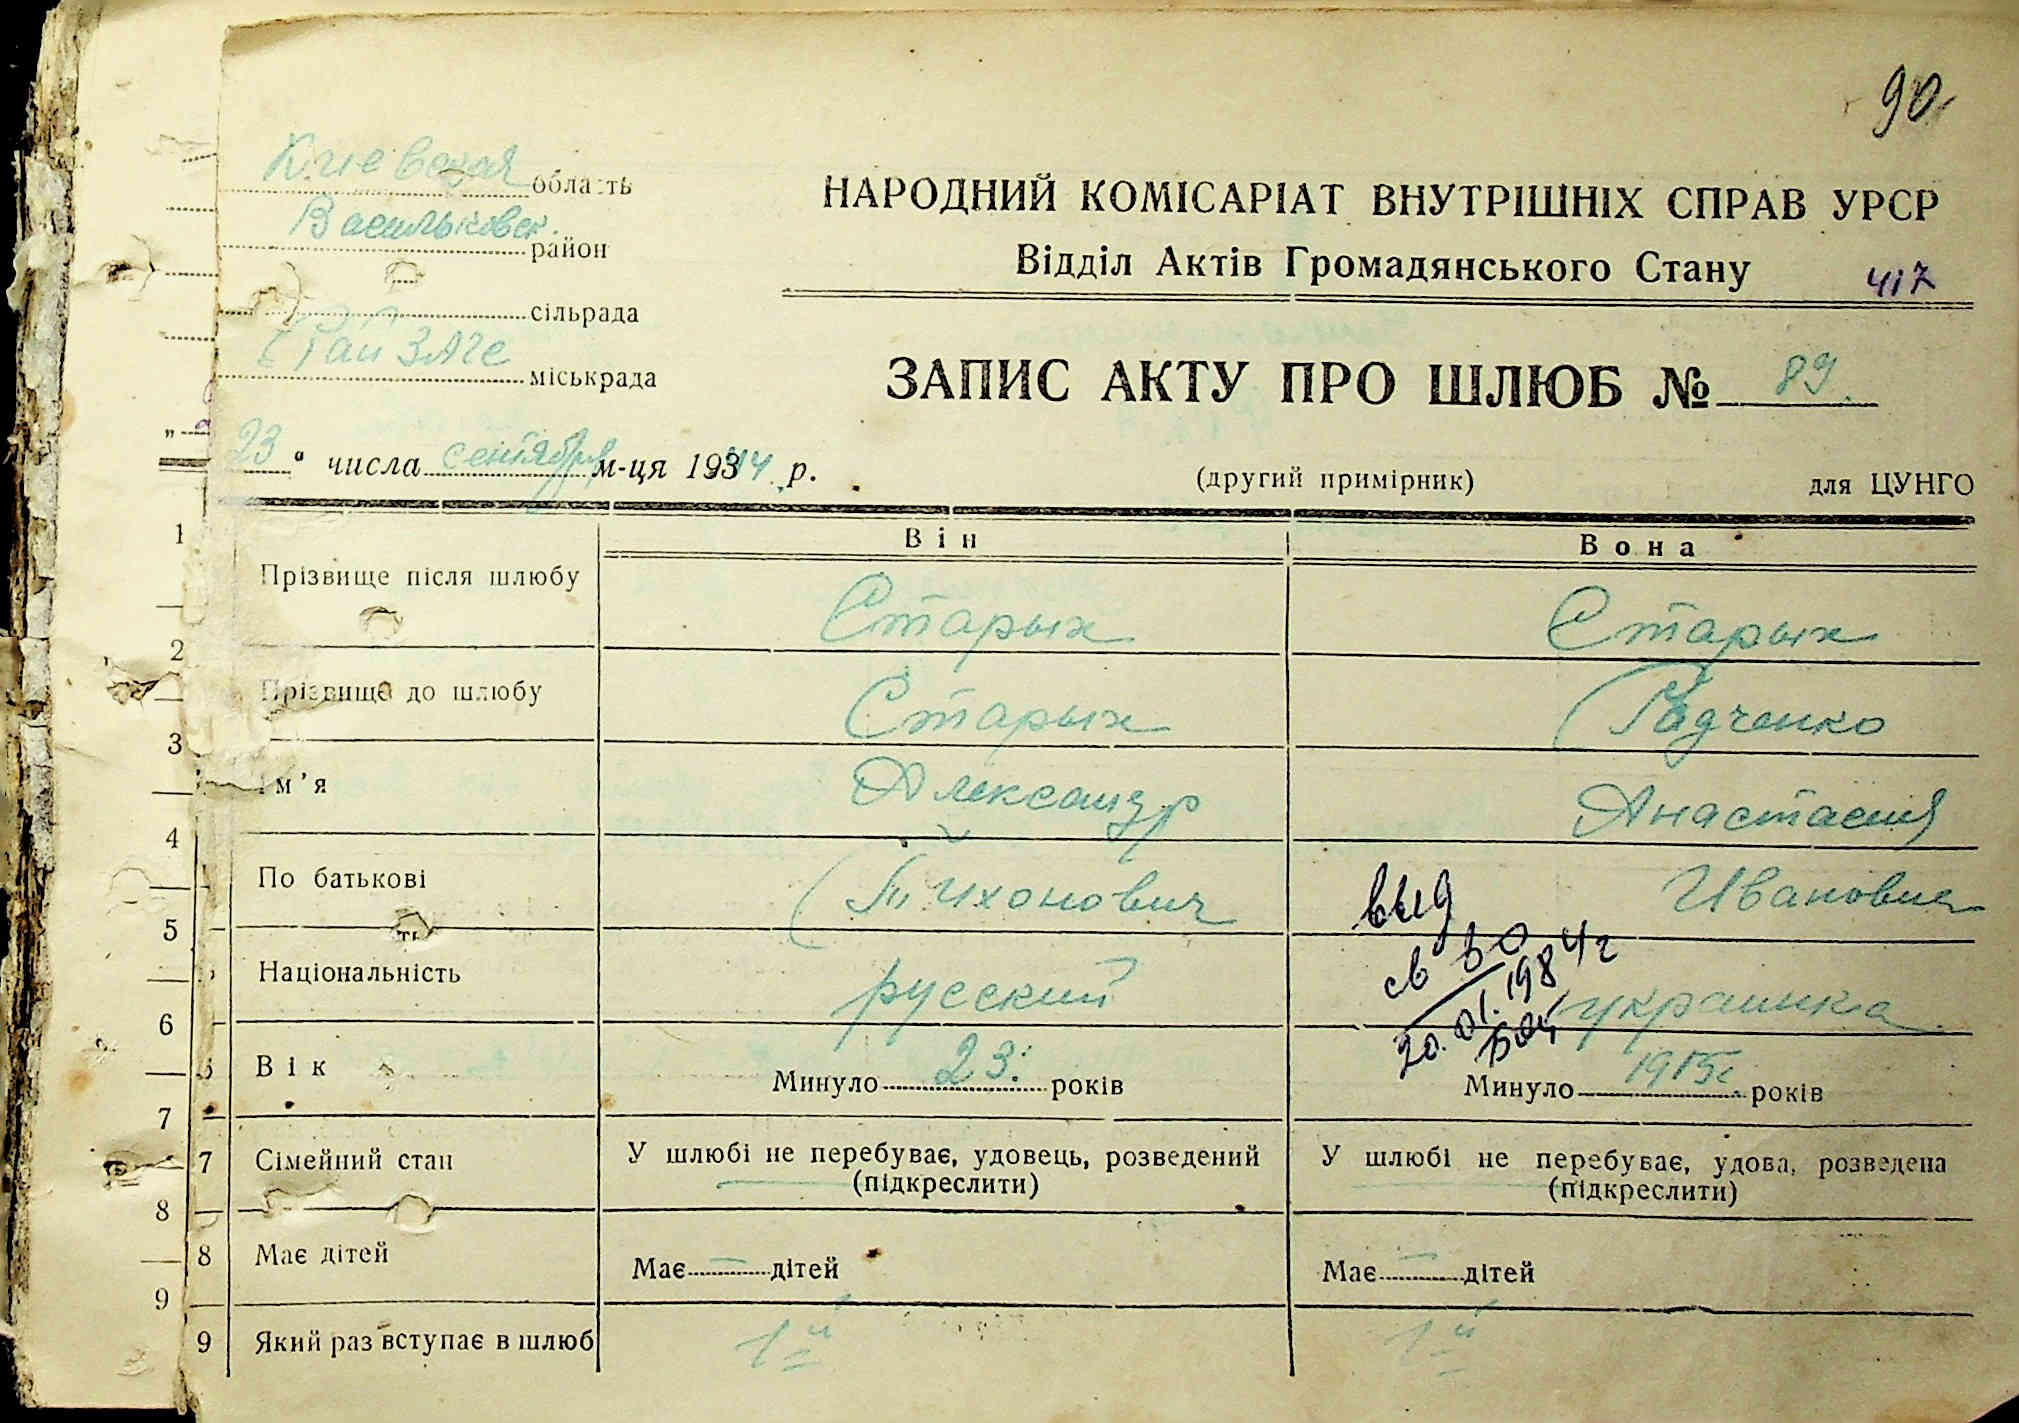 90
Киевская область
Васильковск. район
сільрада
РайЗАГС міськрада
НАРОДНИЙ КОМІСАРІАТ ВНУТРІШНІХ СПРАВ УРСР
Відділ Актів Громадянського Стану
417
ЗАПИС АКТУ ПРО ШЛЮБ № 89.
23 " числа сентября м-ця 1944 р.
(другий примірник)
для ЦУНГО
Він
Вона
Прізвище після шлюбу
Старых
Старых
Прізвище до шлюбу
Старых
Радченко
Ім'я
Александр
Анастасия
По батькові
Тихонович
Ивановна
выд
св ВО
20.01.1984г
Національність
русский
украинка
Вік
Минуло 23. років
Минуло 1915г. років
7 Сімейний стан
У шлюбі не перебуває, удовець, розведений
(підкреслити)
У шлюбі не перебуває, удова, розведена
(підкреслити)
8 Має дітей
Має — дітей
Має — дітей
9 Який раз вступає в шлюб
1й
1й
1
2
3
4
5
6
7
8
9